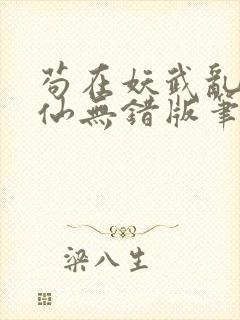 苟在妖武亂
仙無錯版筆
梁八生